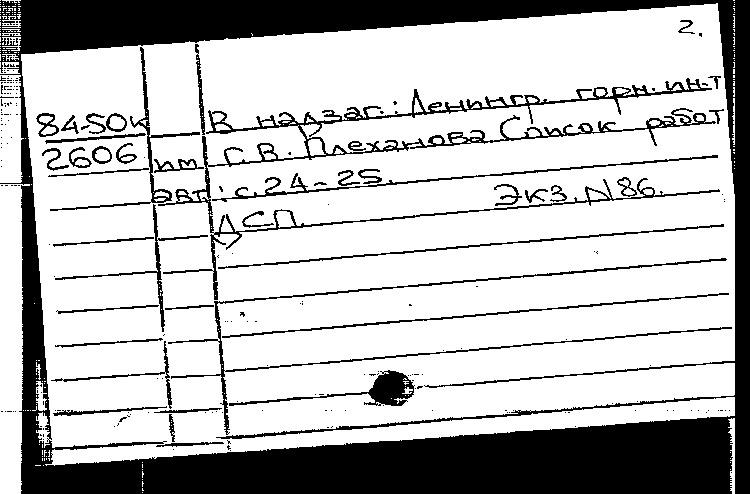 2.
84-50к В надзаг.: Ленингр. горн. ин-т
2606 им. Г.В. Плеханова Список работ
авт.: с. 24-25.
ДСП. Экз. N 86.